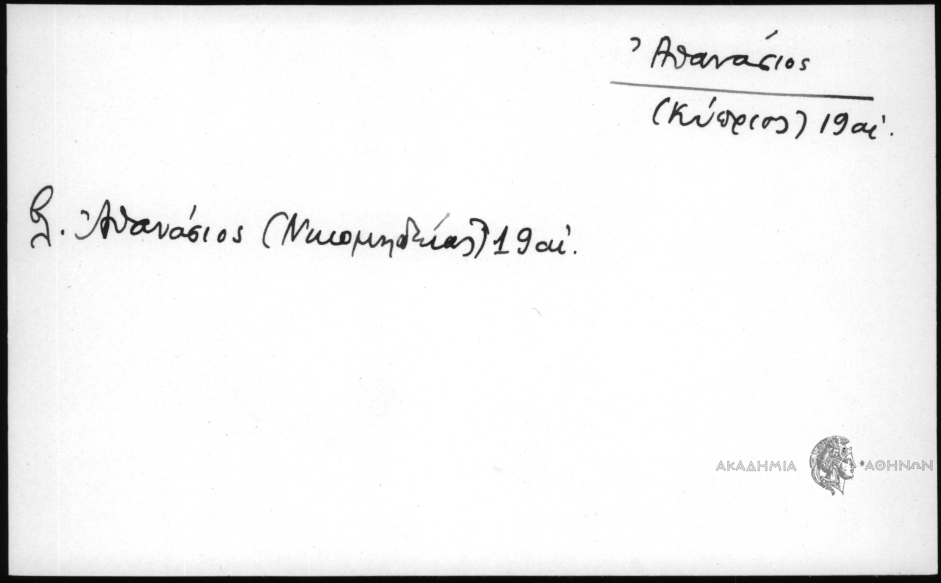 Ἀθανάσιος
(Κύπριος) 19 αἰ.
β. Ἀθανάσιος (Νικομηδείας) 19 αἰ.
ΑΚΑΔΗΜΙΑ ΑΘΗΝΩΝ